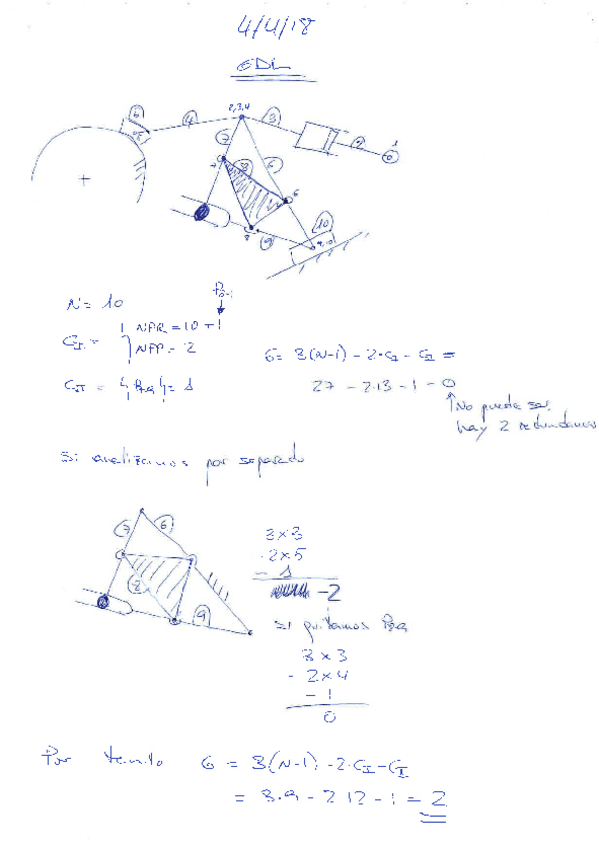 4/4/18
GDL
6
4
2,3,4
3
2
1
7
8
6
6
10
8
9
N = 10
P8-1
CI = { NPR = 10 + 1
NPP = 2
G = 3(N-1) - 2·CI - CII =
CII = { } = 1
27 - 2·13 - 1 = 0
↑ No puede ser
hay 2 redundancias
Si analizamos por separado
7
6
8
9
3x3
-2x5
- 1
-2
si quitamos
3x3
- 2x4
- 1
0
Por tanto G = 3(N-1) - 2·CI - CII
= 3·9 - 2·12 - 1 = 2